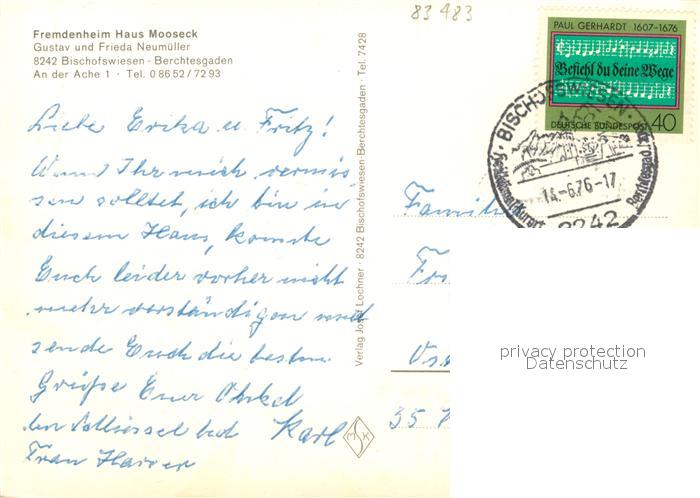 83 483
Fremdenheim Haus Mooseck
Gustav und Frieda Neumüller
8242 Bischofswiesen - Berchtesgaden
An der Ache 1 · Tel. 0 86 52 / 72 93
PAUL GERHARDT 1607-1676
Befiehl du deine Wege
DEUTSCHE BUNDESPOST 40
BISCHOFSWIESEN
14.-6.76-17
8242
Liebe Erika u. Fritz!
Wenn Ihr mich vermis-
sen solltet, ich bin in
diesem Haus, konnte
Euch leider vorher nicht
mehr verständigen und
sende Euch die besten
Grüße Euer Onkel
Karl
Frau
Verlag Josef Lochner · 8242 Bischofswiesen-Berchtesgaden · Tel. 7428
MSK
Famili
35
privacy protection
Datenschutz